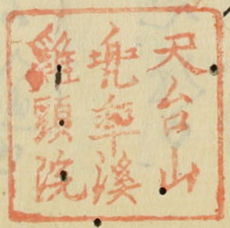 天台山
兜率溪
雞頭院